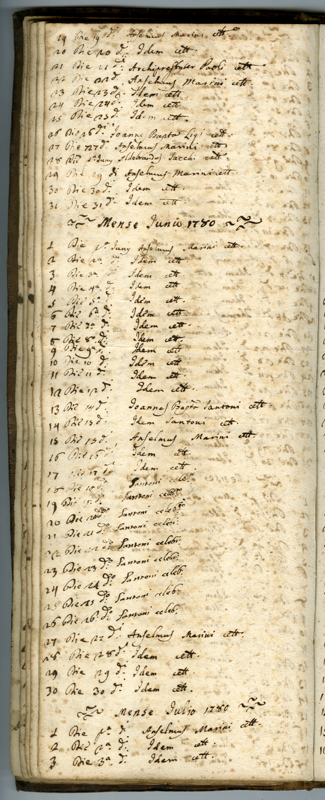 19 Die 19 d.ᵒ Anselmus Marini cett.
20 Die 20 d.ᵒ Idem cett.
21 Die 21 d.ᵒ Archipresbyter Paoli cett.
22 Die 22 d.ᵒ Anselmus Marini cett.
23 Die 23 d.ᵒ Idem cett.
24 Die 24 d.ᵒ Idem cett.
25 Die 25 d.ᵒ Idem cett.
26 Die 26 d.ᵒ Joannes Bapta cett.
27 Die 27 d.ᵒ Anselmus Marini cett.
28 Sacchi cett.
29 Die 29 d.ᵒ Anselmus Marini cett.
30 Die 30 d.ᵒ Idem cett.
31 Die 31 d.ᵒ Idem cett.
Mense Junio 1780
1 Die p.ᵃ Juny Anselmus Marini cett.
2 Die 2ᵃ d.ᵒ Idem cett.
3 Die 3ᵃ d.ᵒ Idem cett.
4 Die 4ᵃ d.ᵒ Idem cett.
5 Die 5ᵃ d.ᵒ Idem cett.
6 Die 6ᵃ d.ᵒ Idem cett.
7 Die 7ᵃ d.ᵒ Idem cett.
8 Die 8ᵃ d.ᵒ Idem cett.
9 Die 9ᵃ d.ᵒ Idem cett.
10 Die 10 d.ᵒ Idem cett.
11 Die 11 d.ᵒ Idem cett.
12 Die 12 d.ᵒ Idem cett.
13 Die d.ᵒ Joannes Bapta Santoni cett.
14 Die d.ᵒ Idem Santoni cett.
15 Die 15 d.ᵒ Anselmus Marini cett.
16 Die 16 d.ᵒ Idem cett.
17 Die 17 d.ᵒ Idem cett.
18 Die 18 d.ᵒ Santoni celeb.
19 Die d.ᵒ Santoni celeb.
20 Die 20 d.ᵒ Santoni celeb.
21 Die 21 d.ᵒ Santoni celeb.
22 Die 22 d.ᵒ Santoni celeb.
23 Die 23 d.ᵒ Santoni celeb.
24 Die 24 d.ᵒ Santoni celeb.
25 Die 25 d.ᵒ Santoni celeb.
26 Die 26 d.ᵒ Santoni celeb.
27 Die d.ᵒ Anselmus Marini cett.
28 Die 28 d.ᵒ Idem cett.
29 Die 29 d.ᵒ Idem cett.
30 Die 30 d.ᵒ Idem cett.
Mense Julio 1780
1 Die p.ᵃ d.ᵒ Anselmus Marini cett.
2 Die 2ᵃ d.ᵒ Idem cett.
3 Die 3ᵃ d.ᵒ Idem cett.